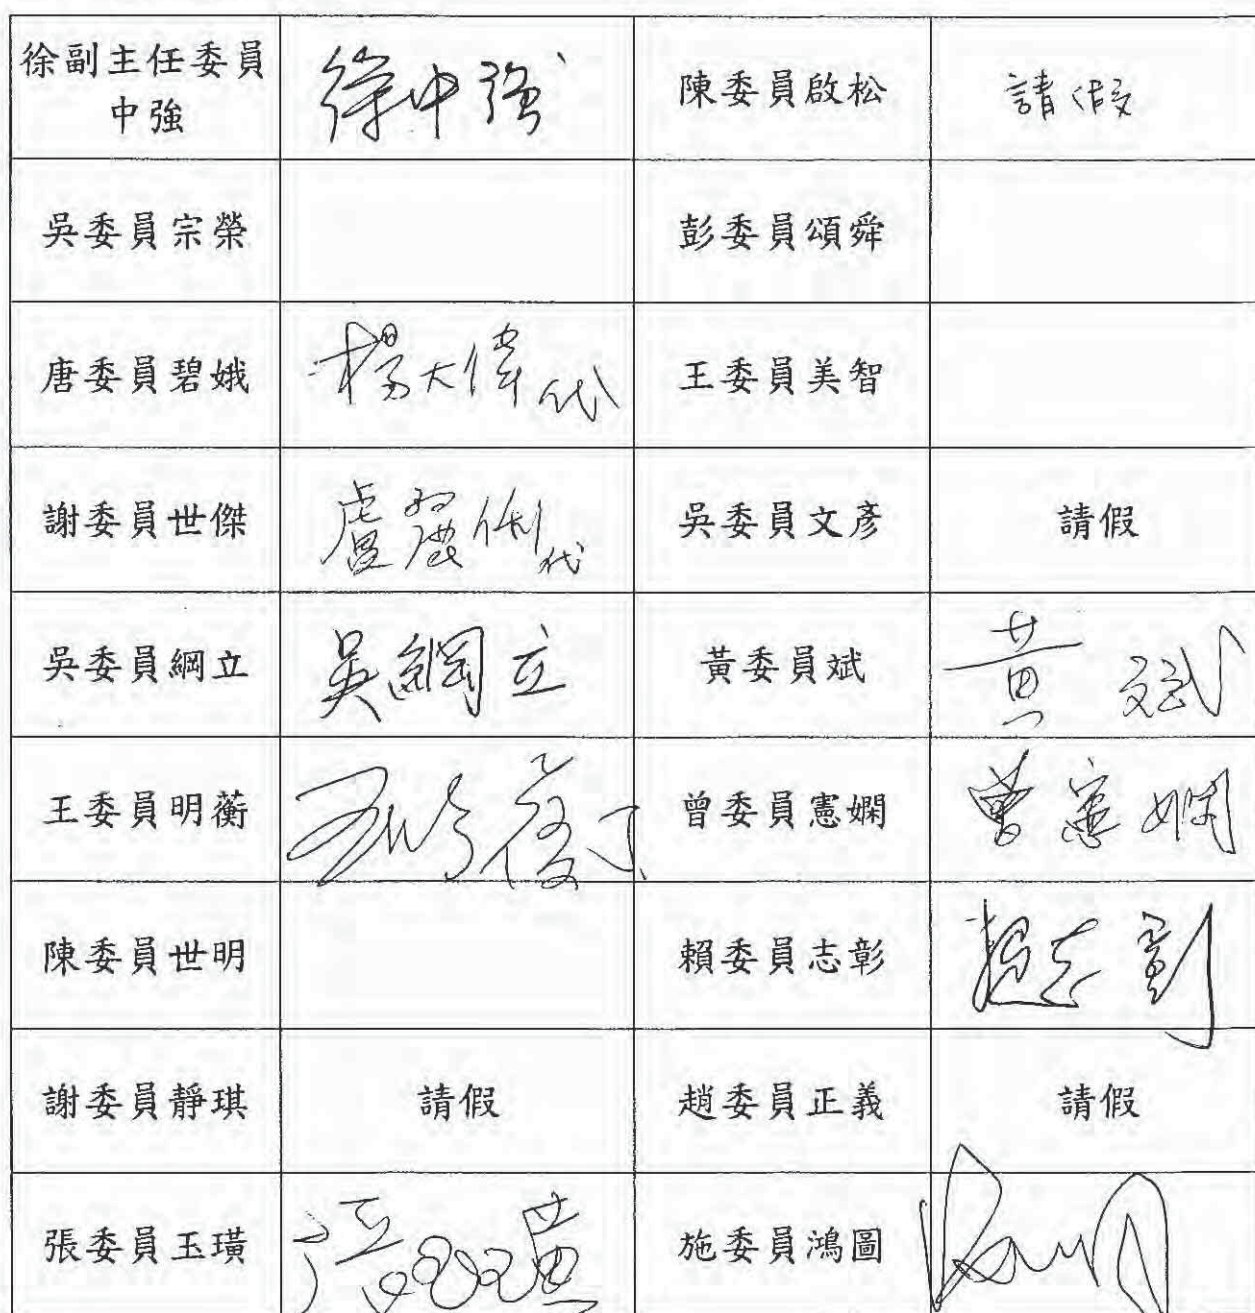 徐副主任委員
中強
徐中強
陳委員啟松
請假
吳委員宗榮
彭委員頌舜
唐委員碧娥
楊大偉代
王委員美智
謝委員世傑
盧
代
吳委員文彥
請假
吳委員綱立
吳綱立
黃委員斌
黃斌
王委員明蘅
曾委員憲嫻
曾憲嫻
陳委員世明
賴委員志彰
賴志彰
謝委員靜琪
請假
趙委員正義
請假
張委員玉璜
張玉璜
施委員鴻圖